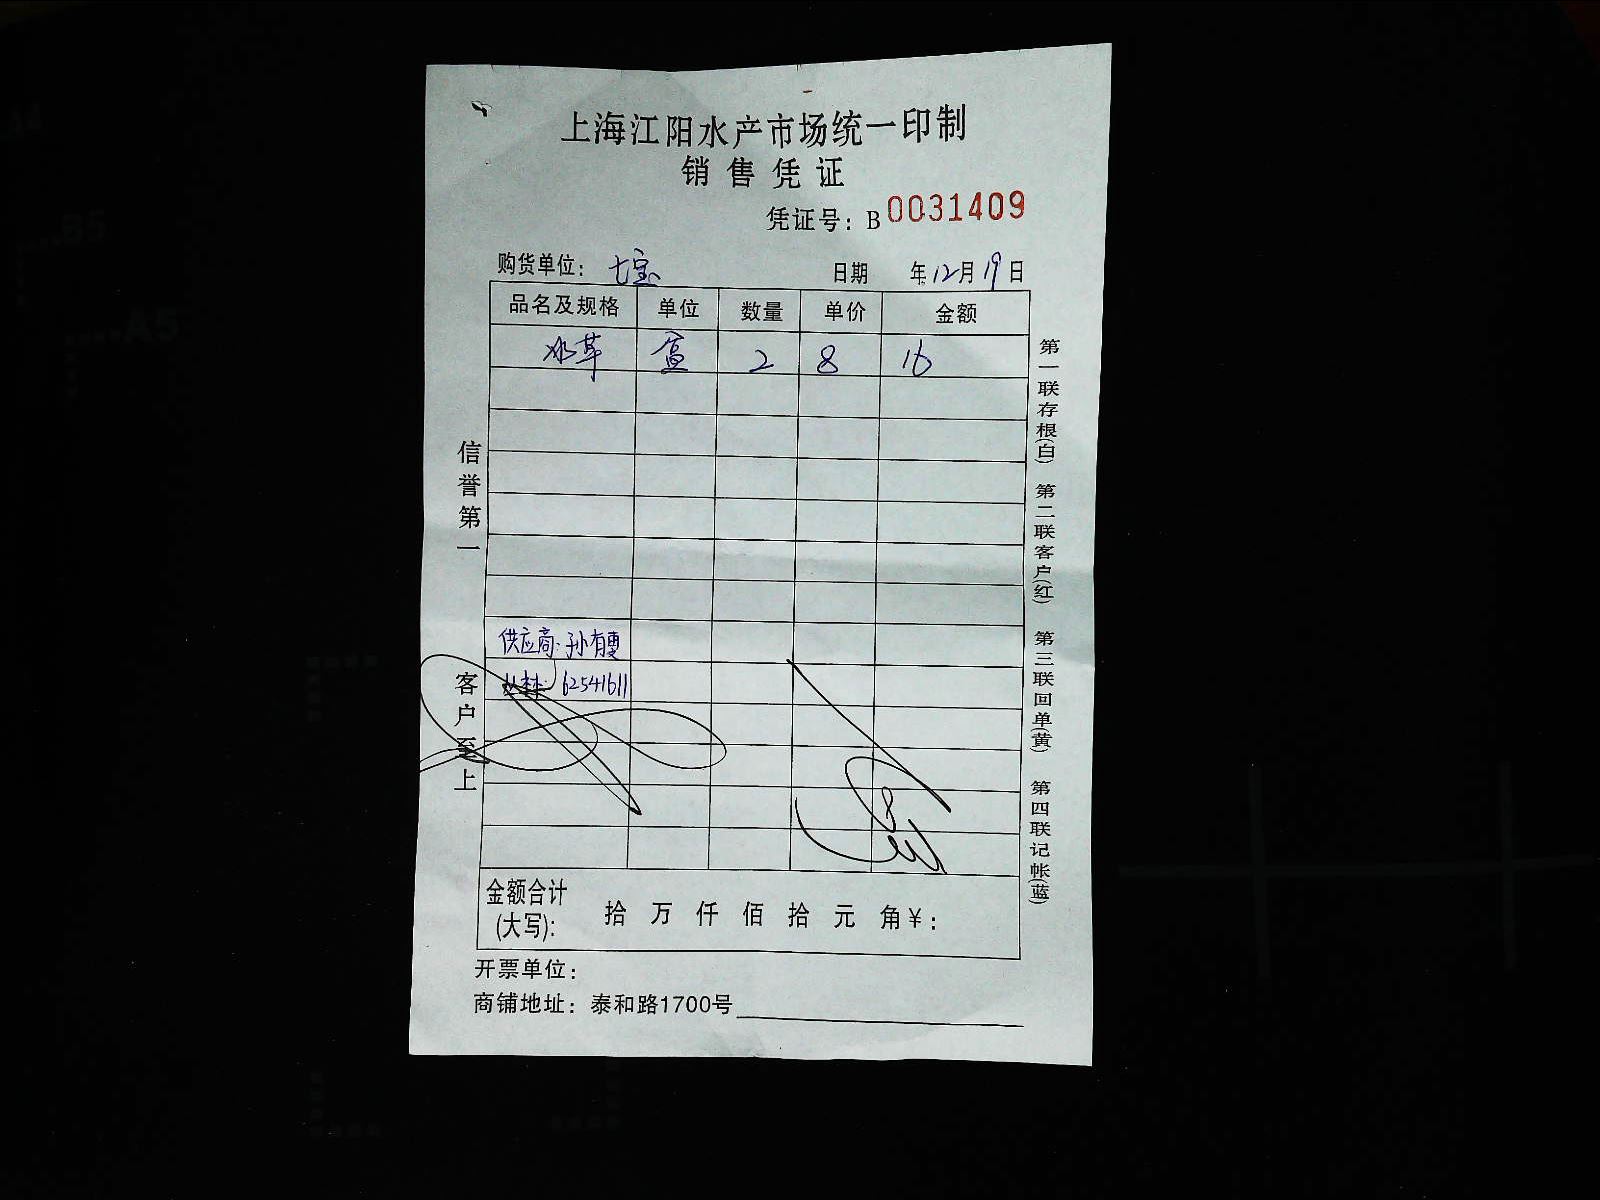 上海江阳水产市场统一印制
销售凭证
凭证号：B 0031409
购货单位：七宝 日期 年12月19日
品名及规格 单位 数量 单价 金额
水草 盒 2 8 16
供应商：孙有
62541611
金额合计(大写)： 拾 万 仟 佰 拾 元 角 ¥：
开票单位：
商铺地址：泰和路1700号
信誉第一 客户至上
第一联存根(白) 第二联客户(红) 第三联回单(黄) 第四联记帐(蓝)